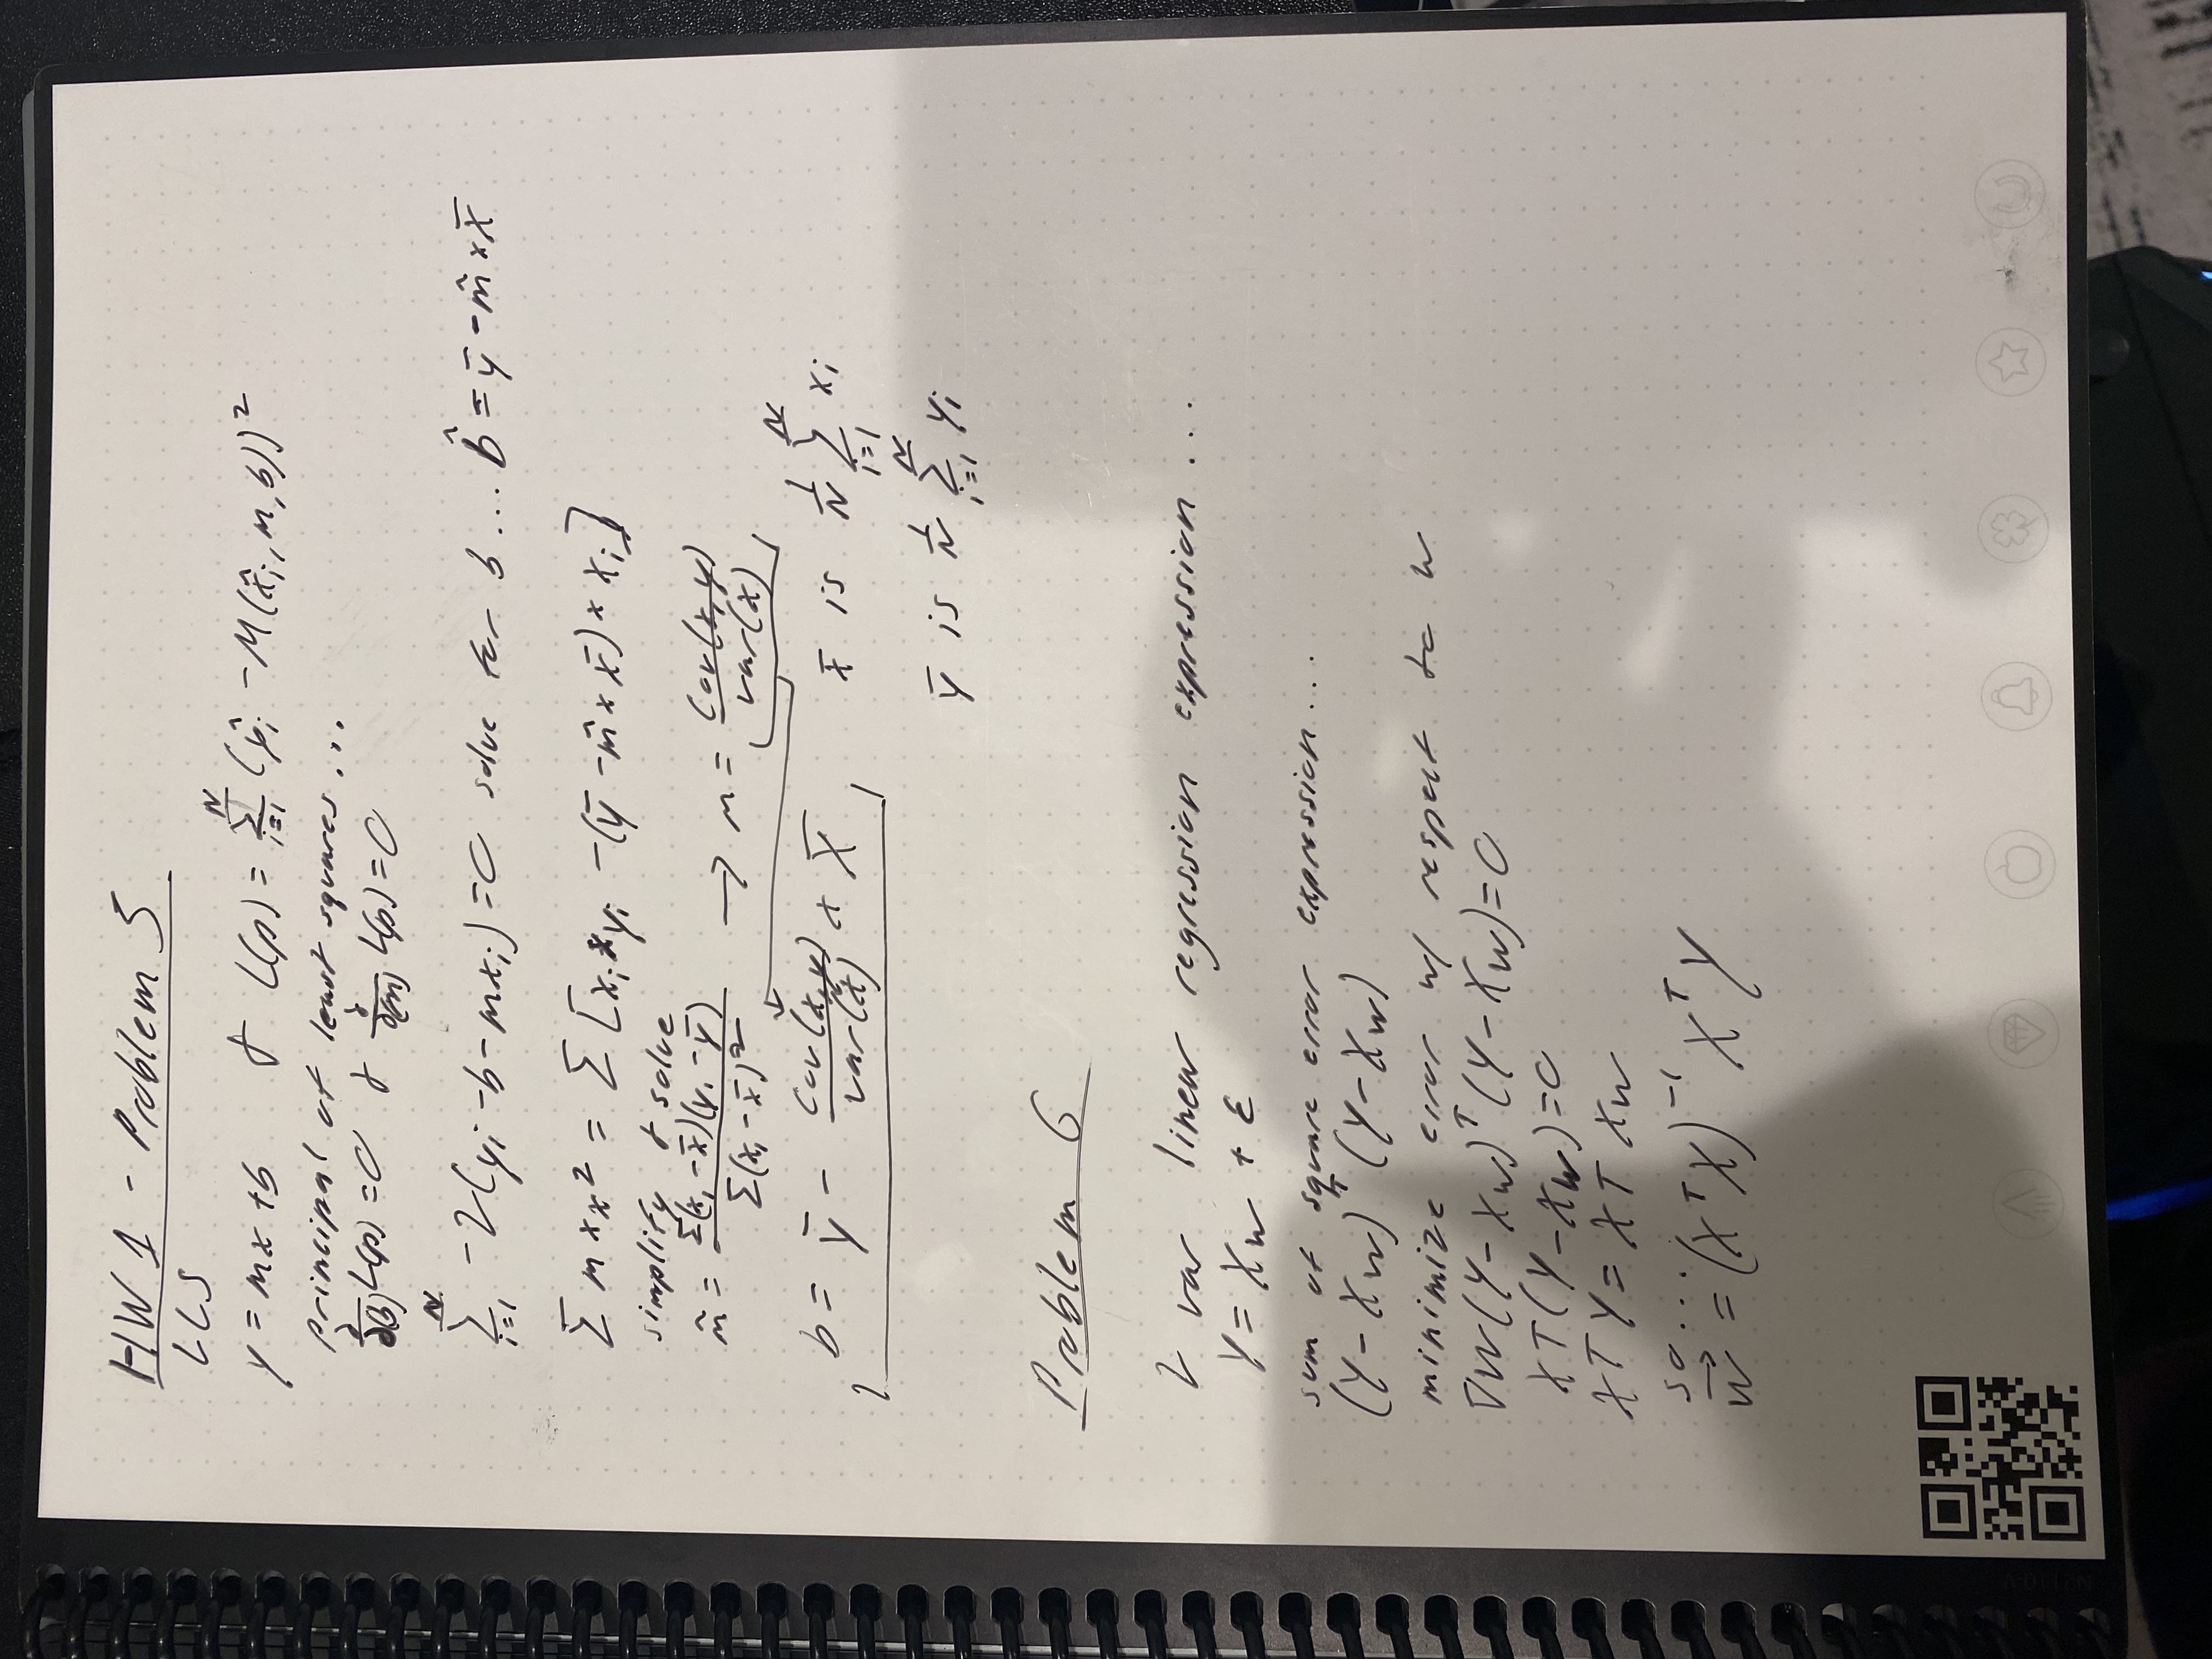 HW 1 - Problem 5
LLS
y = mx + b & L(p) = N Σ i=1 (ŷi - M(x̂i, m, b))²
principal of least squares...
∂/∂(b) L(p) = 0 & ∂/∂(m) L(p) = 0
N Σ i=1 -2(yi - b - mxi) = 0 solve for b... b̂ = ȳ - m̂ × x̄
Σ m × x² = Σ [xi * yi - (ȳ - m̂ × x̄) × xi]
simplify & solve
m̃ = Σ(xi - x̄)(yi - ȳ) / Σ(xi - x̄)² → m = cov(x,y) / var(x)
b = ȳ - cov(x,y) / var(x) × x̄
x̄ is 1/N N Σ i=1 xi
ȳ is 1/N N Σ i=1 yi
Problem 6
2 var linear regression expression...
Y = Xw + ε
sum of square error expression...
(Y - Xw)ᵀ (Y - Xw)
minimize error w/ respect to w
∇W(Y - Xw)ᵀ (Y - Xw) = 0
XT(Y - Xw) = 0
XT Y = XT Xw
so...
w⃗ = (XᵀX)⁻¹ XᵀY